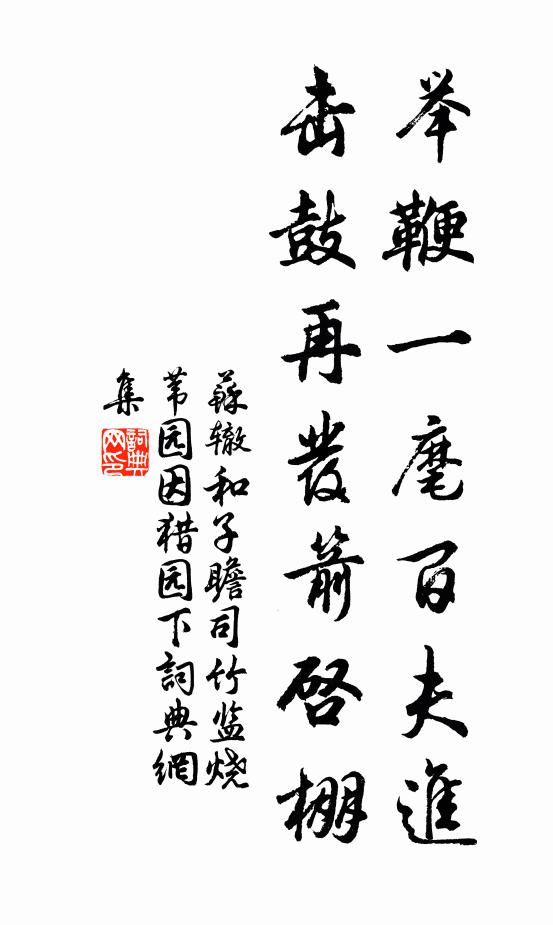 举鞭一麾百夫進
击鼓再發箭啓棚
蘇辙和子瞻司竹监烧
苇园因猎园下詞典網
集
詞典网印